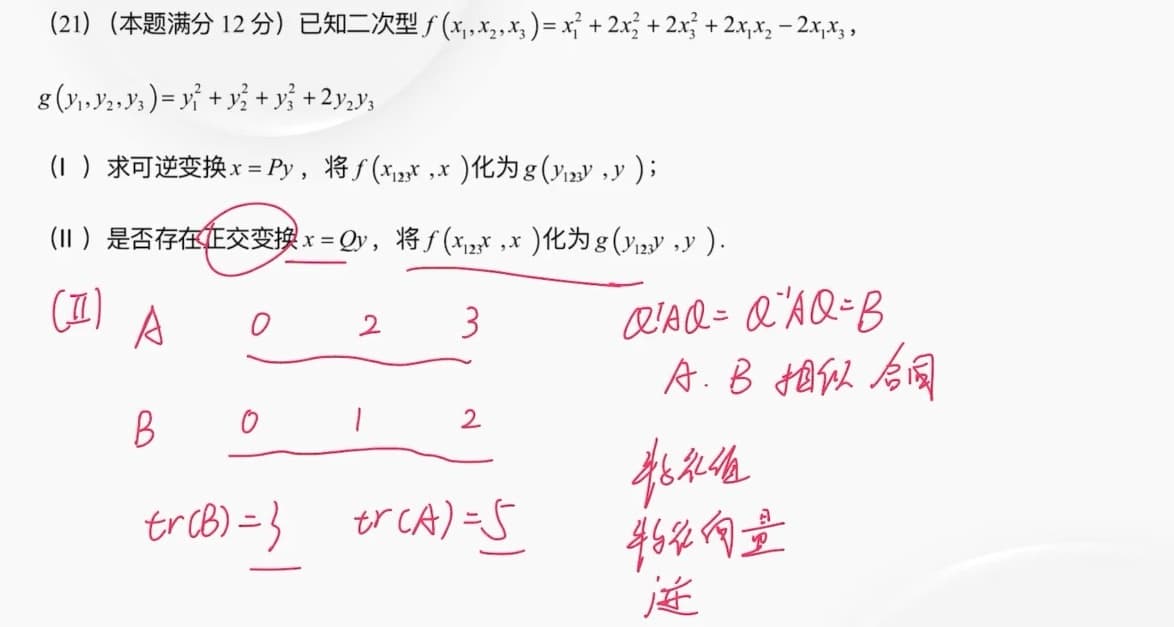 (21)（本题满分 12 分）已知二次型 f(x₁,x₂,x₃)= x₁² + 2x₂² + 2x₃² + 2x₁x₂ − 2x₁x₃ ,
g(y₁,y₂,y₃)= y₁² + y₂² + y₃² + 2y₂y₃
(Ⅰ ）求可逆变换 x = Py ，将 f(x₁₂₃x ,x )化为 g(y₁₂₃y ,y )；
(Ⅱ ）是否存在正交变换 x = Qy，将 f(x₁₂₃x ,x )化为 g(y₁₂₃y ,y ).
(Ⅱ) A 0 2 3 QᵀAQ = Q⁻¹AQ = B
A. B 相似 合同
B 0 1 2
特征值
tr(B) = 3 tr(A) = 5
特征向量
迹